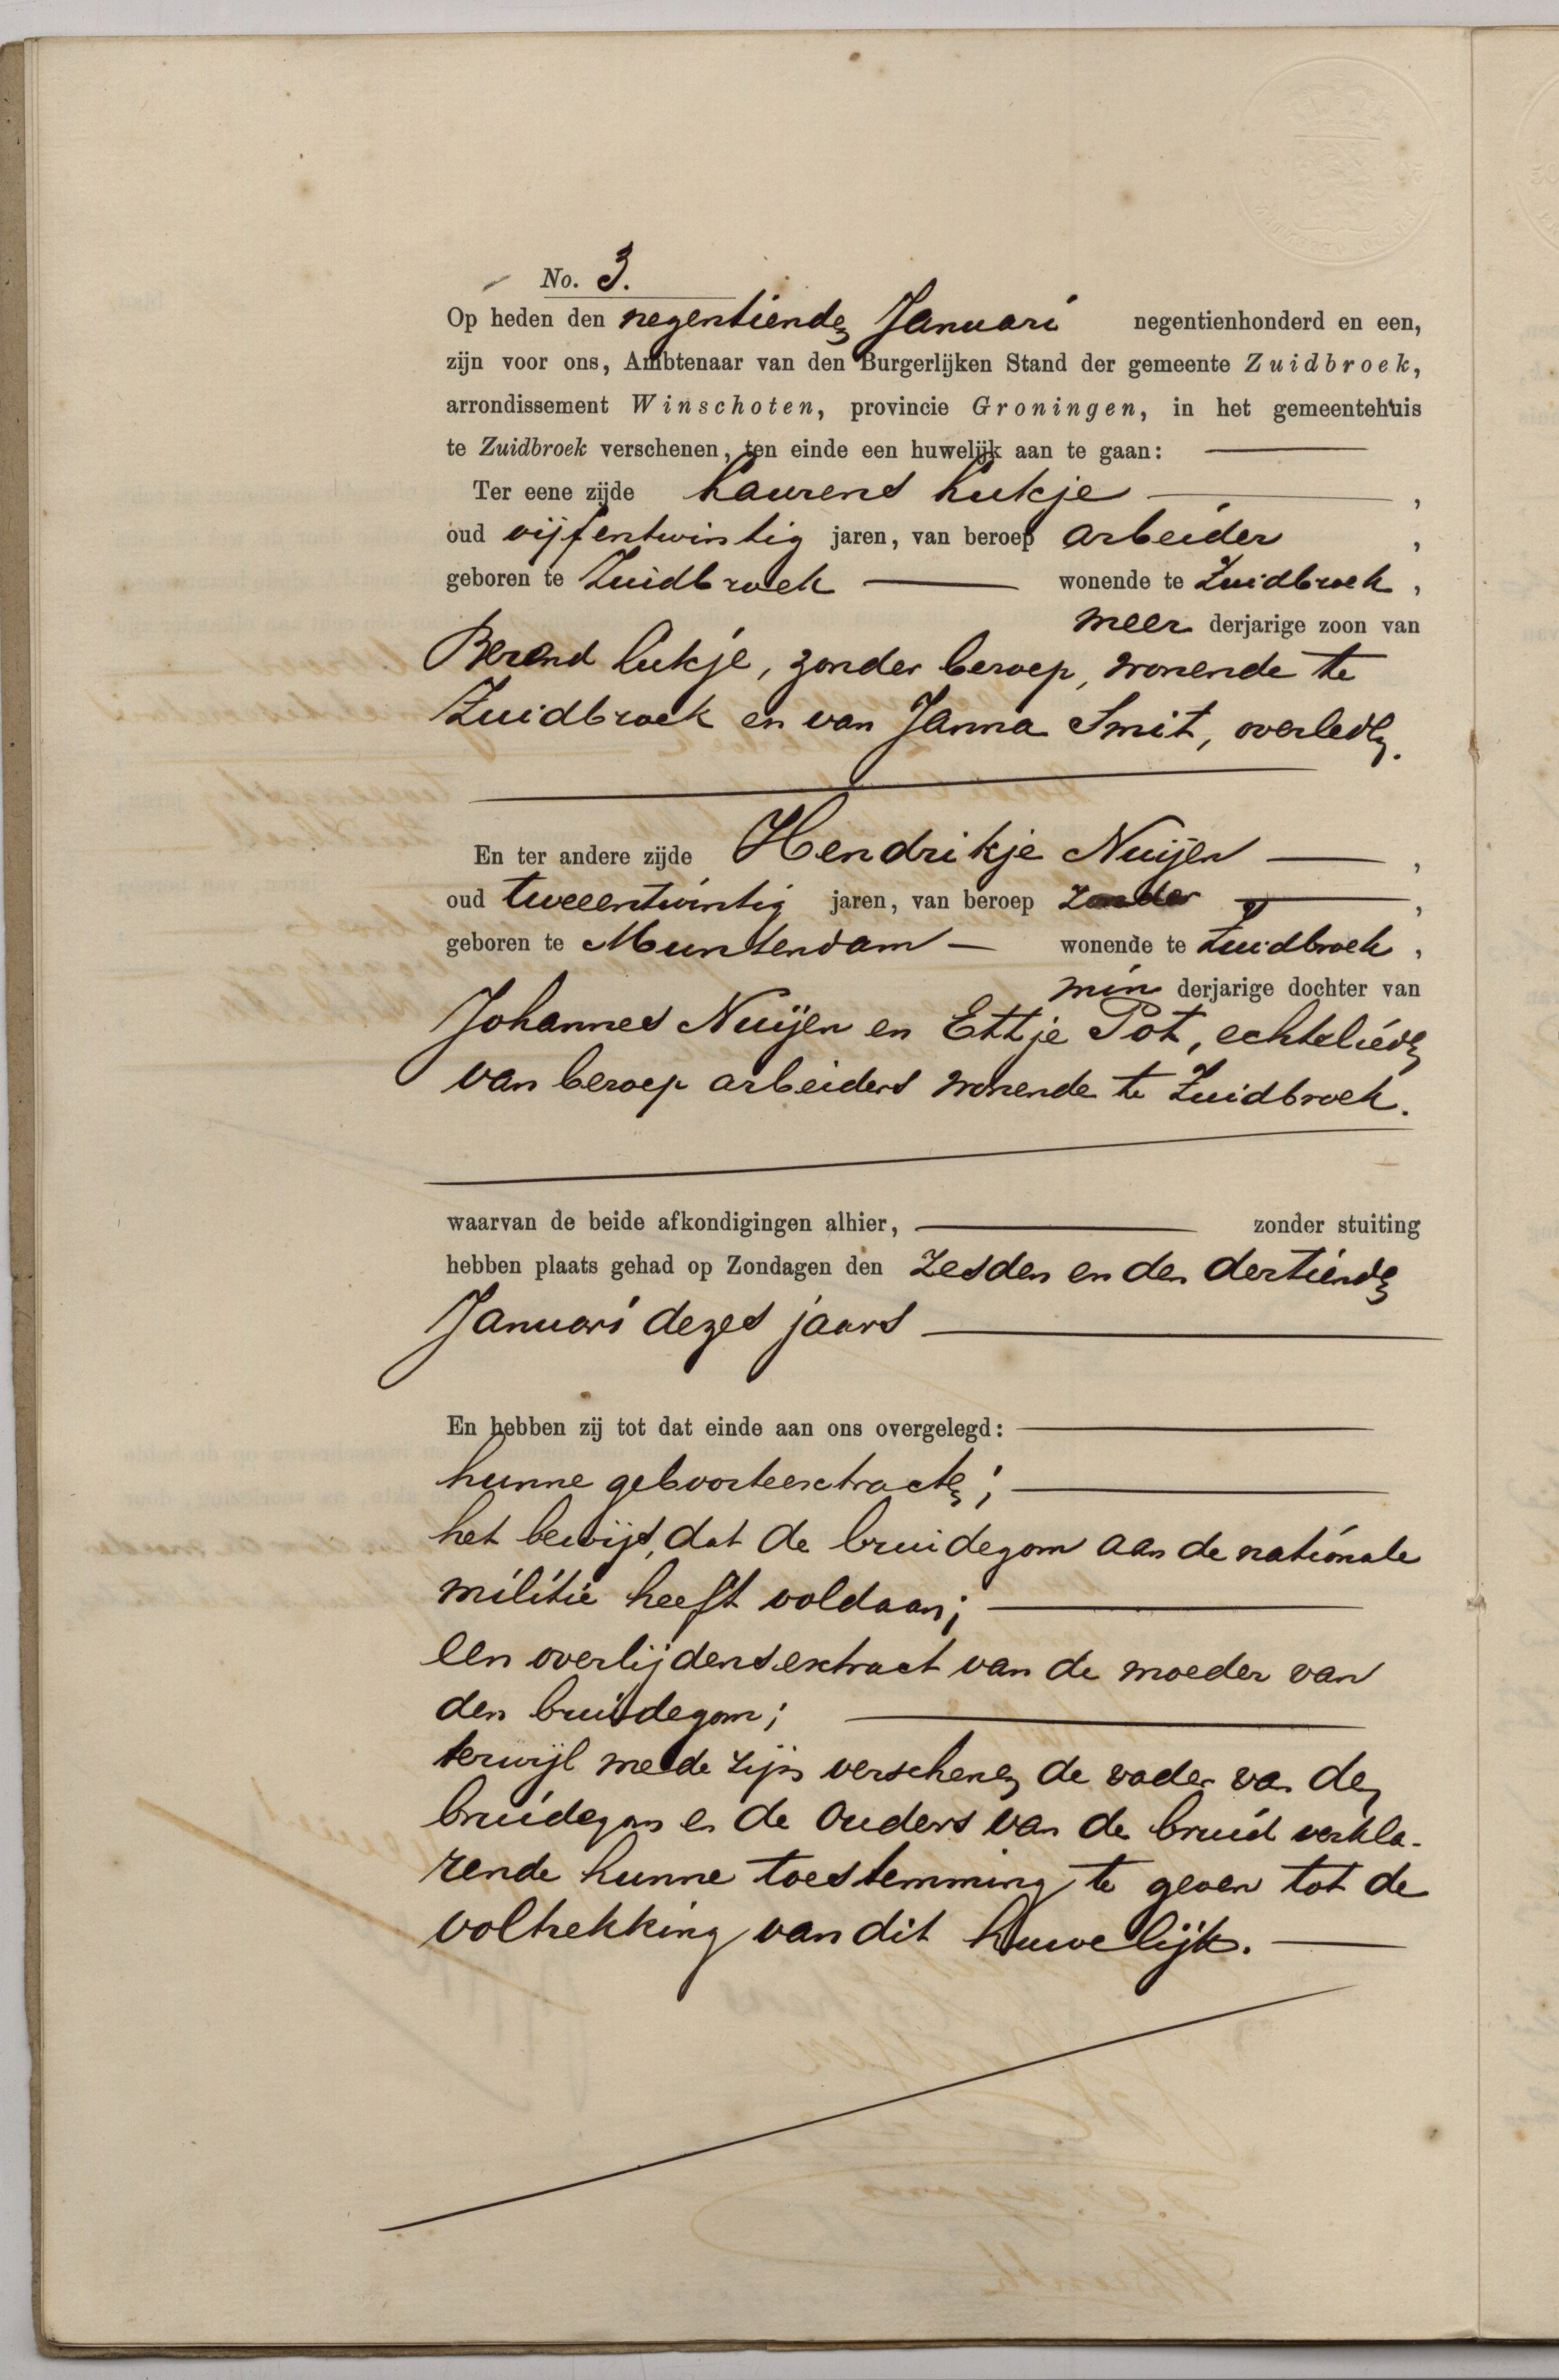 No. 3.
Op heden den negentienden Januari negentienhonderd en een,
zijn voor ons, Ambtenaar van den Burgerlijken Stand der gemeente Zuidbroek,
arrondissement Winschoten, provincie Groningen, in het gemeentehuis
te Zuidbroek verschenen, ten einde een huwelijk aan te gaan:
Ter eene zijde Laurens Lukje,
oud vijfentwintig jaren, van beroep arbeider,
geboren te Zuidbroek wonende te Zuidbroek,
meer derjarige zoon van
Berend Lukje, zonder beroep, wonende te
Zuidbroek en van Janna Smit, overleden.
En ter andere zijde Hendrikje Nuijen,
oud tweeentwintig jaren, van beroep zonder,
geboren te Muntendam wonende te Zuidbroek,
min derjarige dochter van
Johannes Nuijen en Ettje Pot, echtelieden
van beroep arbeiders wonende te Zuidbroek.
waarvan de beide afkondigingen alhier, zonder stuiting
hebben plaats gehad op Zondagen den zesden en den dertienden
Januari dezes jaars
En hebben zij tot dat einde aan ons overgelegd:
hunne geboorteextracten;
het bewijs, dat de bruidegom aan de nationale
militie heeft voldaan;
een overlijdensextract van de moeder van
den bruidegom;
terwijl mede zijn verschenen de vader van den
bruidegom en de ouders van de bruid verkla-
rende hunne toestemming te geven tot de
voltrekking van dit huwelijk.